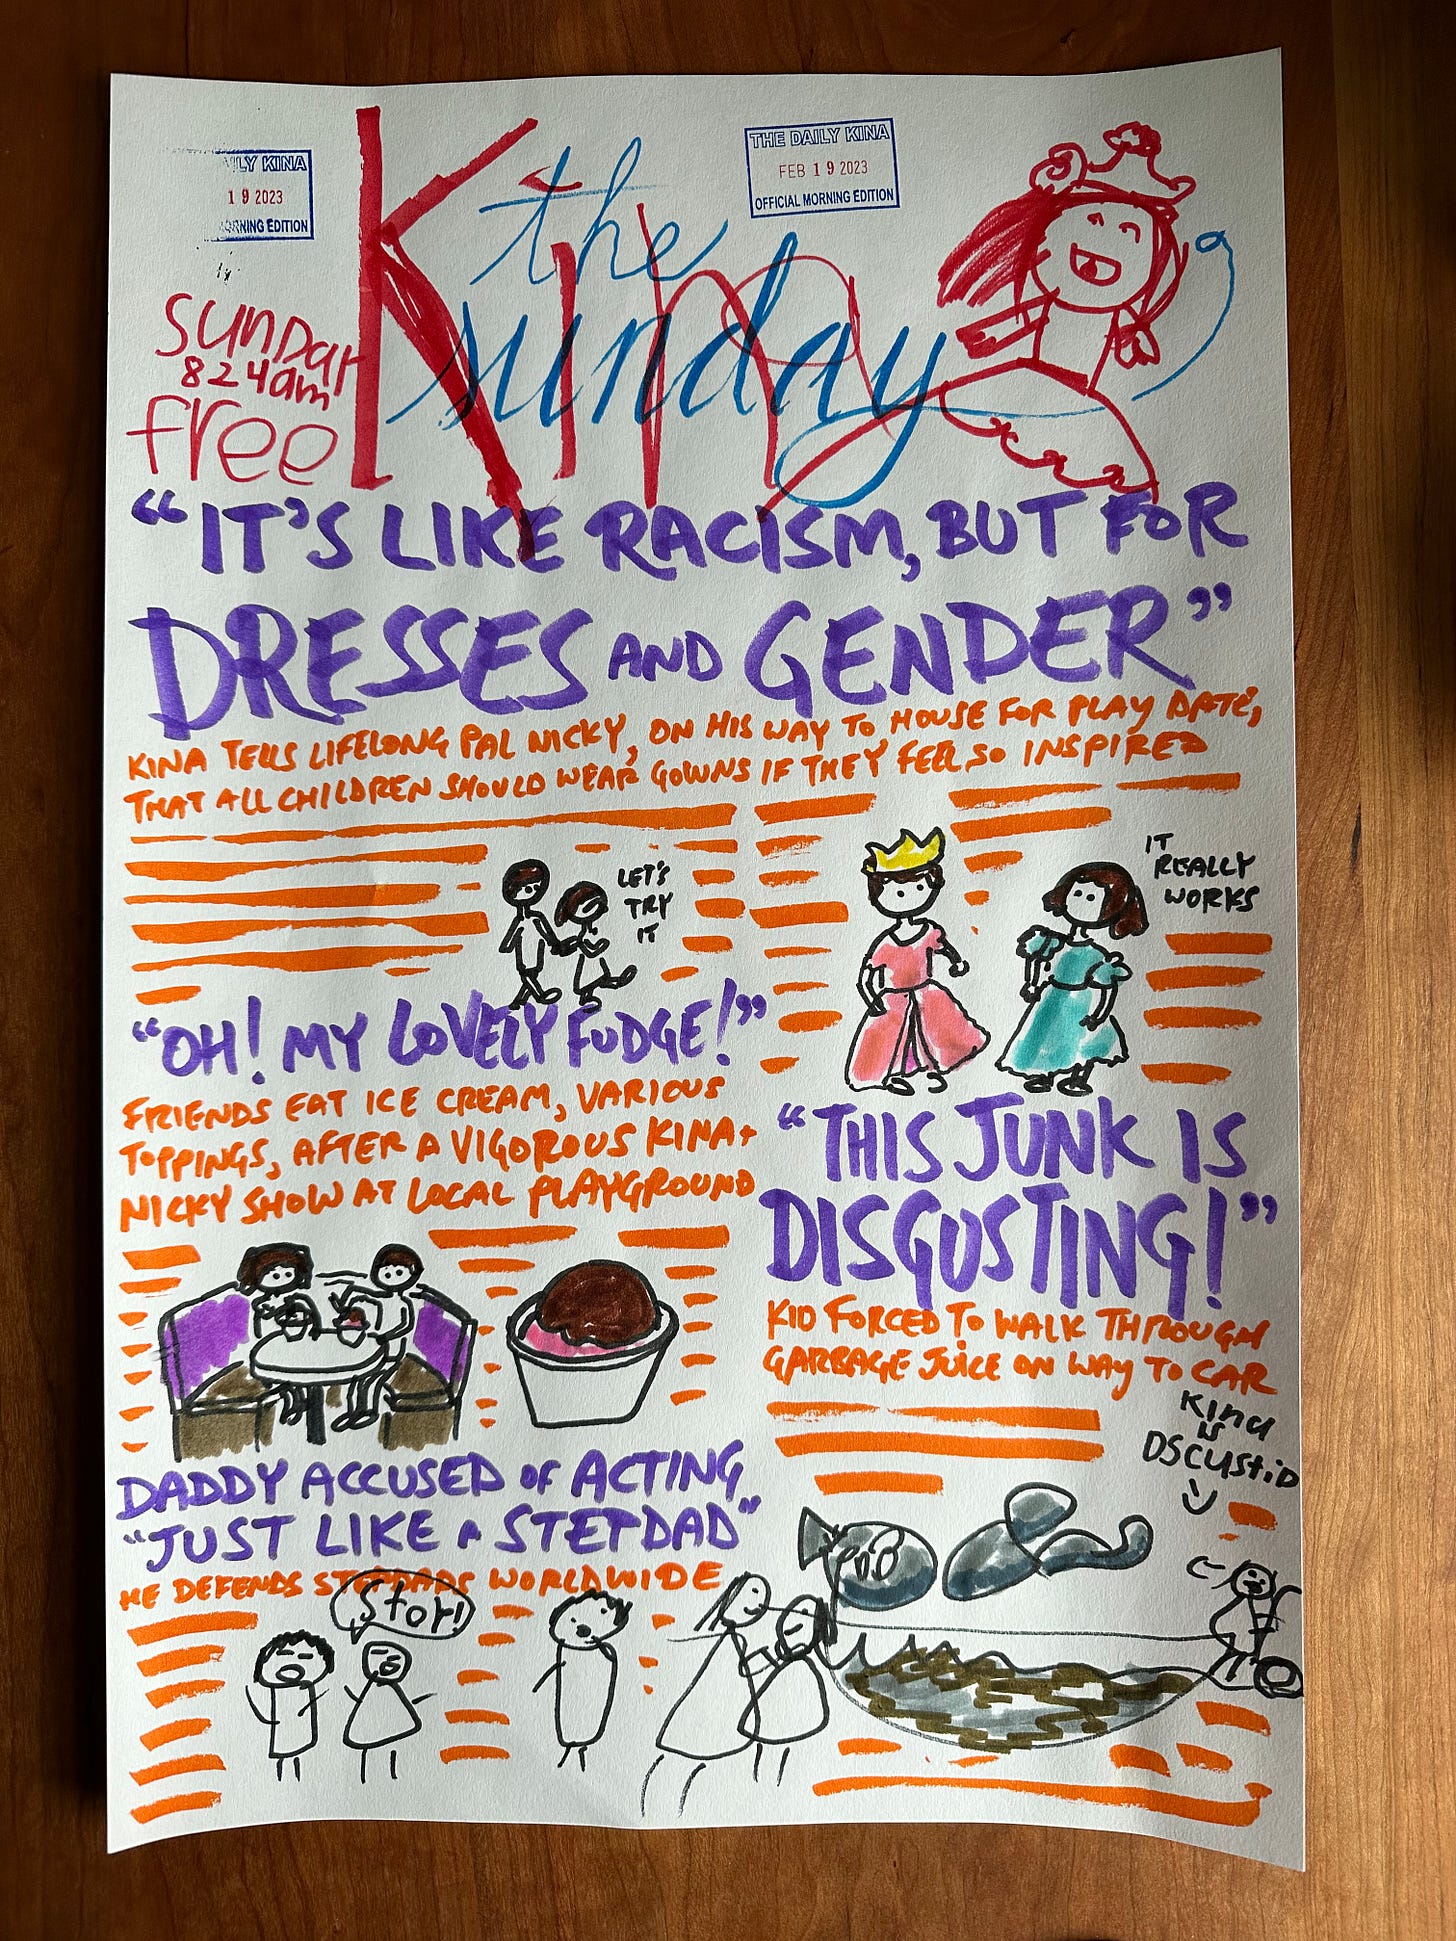 ILY KINA
19 2023
ORNING EDITION
THE DAILY KINA
FEB 19 2023
OFFICIAL MORNING EDITION
the
sunday
Kina
SUNDAY
824am
free
"IT'S LIKE RACISM, BUT FOR
DRESSES AND GENDER"
KINA TELLS LIFELONG PAL NICKY, ON HIS WAY TO HOUSE FOR PLAY DATE,
THAT ALL CHILDREN SHOULD WEAR GOWNS IF THEY FEEL SO INSPIRED
LET'S
TRY
IT
IT
REALLY
WORKS
"OH! MY LOVELY FUDGE!"
FRIENDS EAT ICE CREAM, VARIOUS
TOPPINGS, AFTER A VIGOROUS KINA+
NICKY SHOW AT LOCAL PLAYGROUND
"THIS JUNK IS
DISGUSTING!"
KID FORCED TO WALK THROUGH
GARBAGE JUICE ON WAY TO CAR
Kina
is
DSCUStiD
DADDY ACCUSED OF ACTING
"JUST LIKE A STEPDAD"
HE DEFENDS STEPDADS WORLDWIDE
StoP!